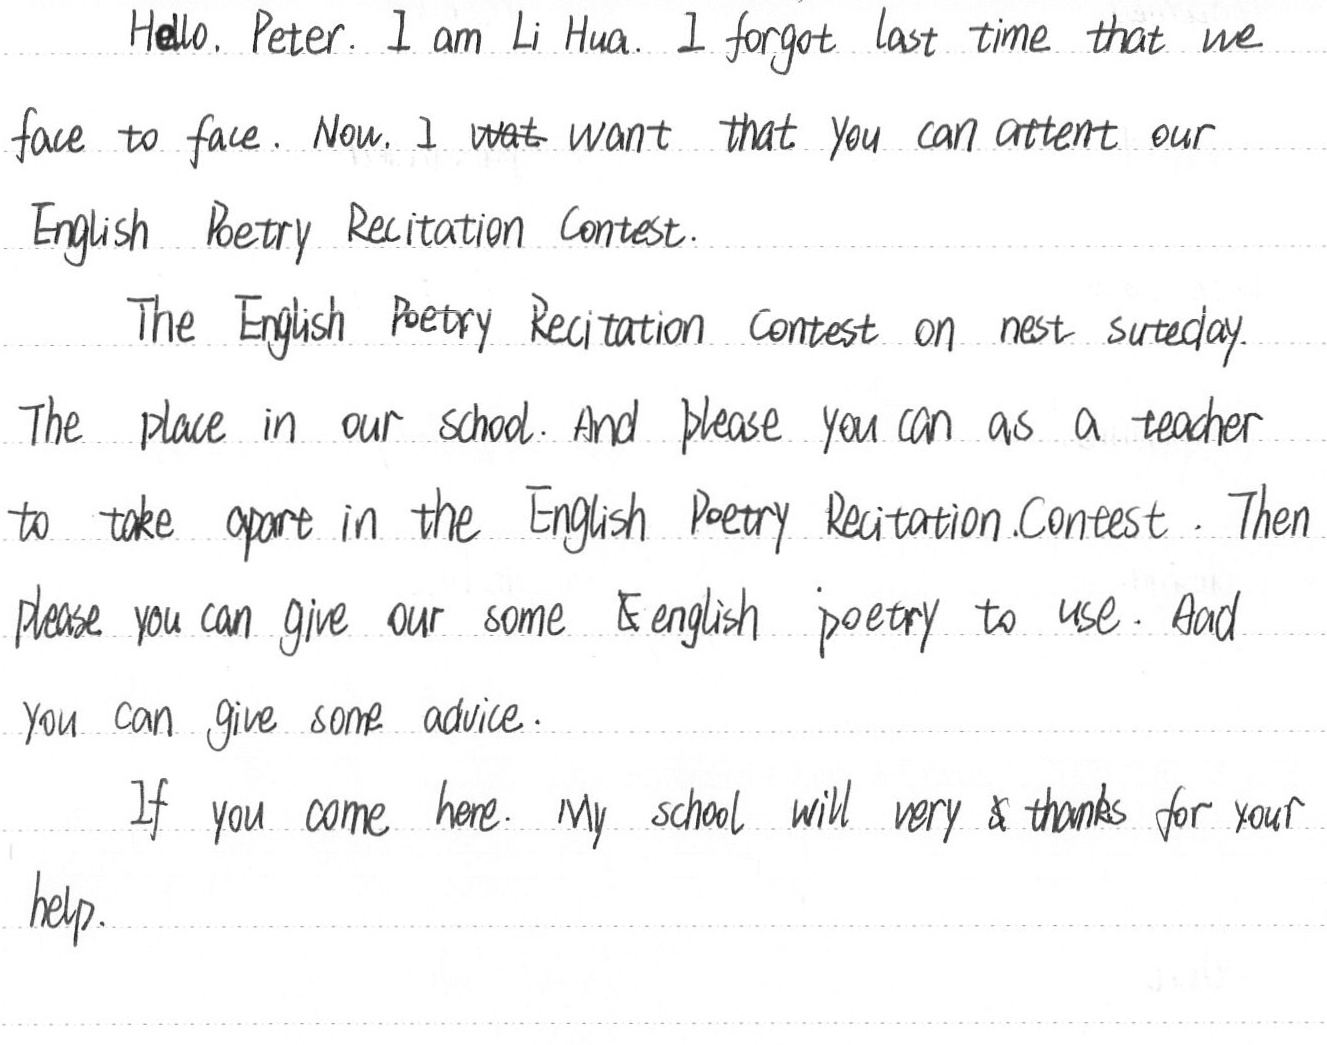 Hello. Peter. I am Li Hua. I forgot last time that we
face to face. Now. I wat want that you can attent our
English Poetry Recitation Contest.
The English Poetry Recitation Contest on nest suteday.
The place in our school. And please you can as a teacher
to take apart in the English Poetry Recitation Contest. Then
please you can give our some E english poetry to use. Aad
you can give some advice.
If you come here. My school will very thanks for your
help.